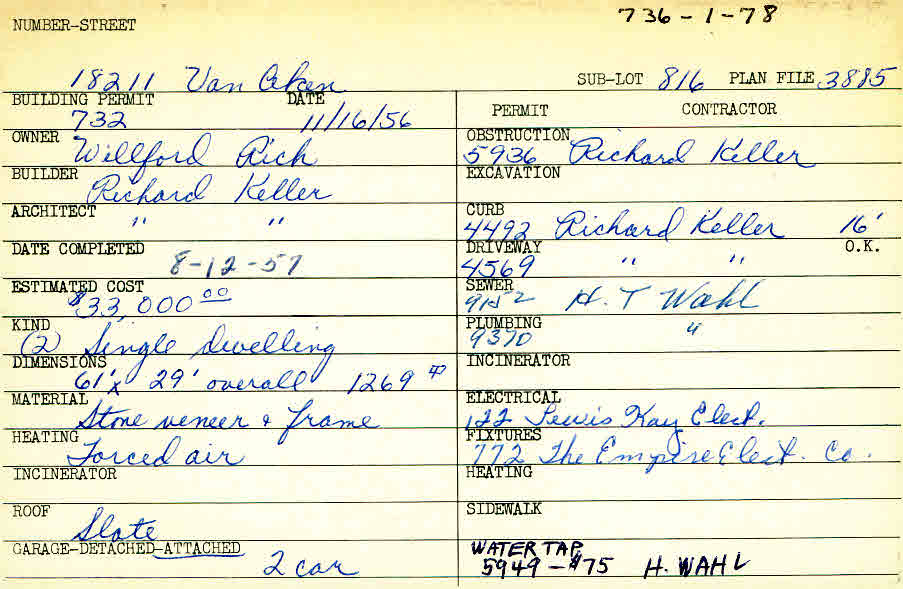 736-1-78
NUMBER-STREET
18211 Van Aken SUB-LOT 816 PLAN FILE 3885
BUILDING PERMIT DATE
732 11/16/56
OWNER Willford Rich
BUILDER Richard Keller
ARCHITECT " "
DATE COMPLETED 8-12-57
ESTIMATED COST
$33,000.00
KIND
(2) Single dwelling
DIMENSIONS
61' x 29' overall 1269
MATERIAL
Stone veneer & frame
HEATING
Forced air
INCINERATOR
ROOF
Slate
GARAGE-DETACHED-ATTACHED
2 car
PERMIT CONTRACTOR
OBSTRUCTION
5936 Richard Keller
EXCAVATION
CURB
4492 Richard Keller 16'
DRIVEWAY O.K.
4569 " "
SEWER
9152 H. T Wahl
PLUMBING
9370 "
INCINERATOR
ELECTRICAL
122 Lewis Kay Elect.
FIXTURES
772 The Empire Elect. Co.
HEATING
SIDEWALK
WATER TAP
5949-$75 H. WAHL